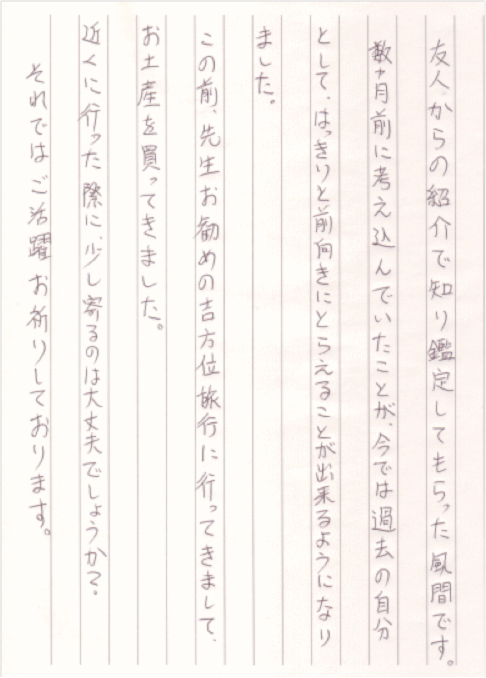 友人からの紹介で知り鑑定してもらった風間です。
数ヶ月前に考え込んでいたことが、今では過去の自分
として、はっきりと前向きにとらえることが出来るようになり
ました。
この前、先生お勧めの吉方位旅行に行ってきまして、
お土産を買ってきました。
近くに行った際に、少し寄るのは大丈夫でしょうか？
それではご活躍お祈りしております。